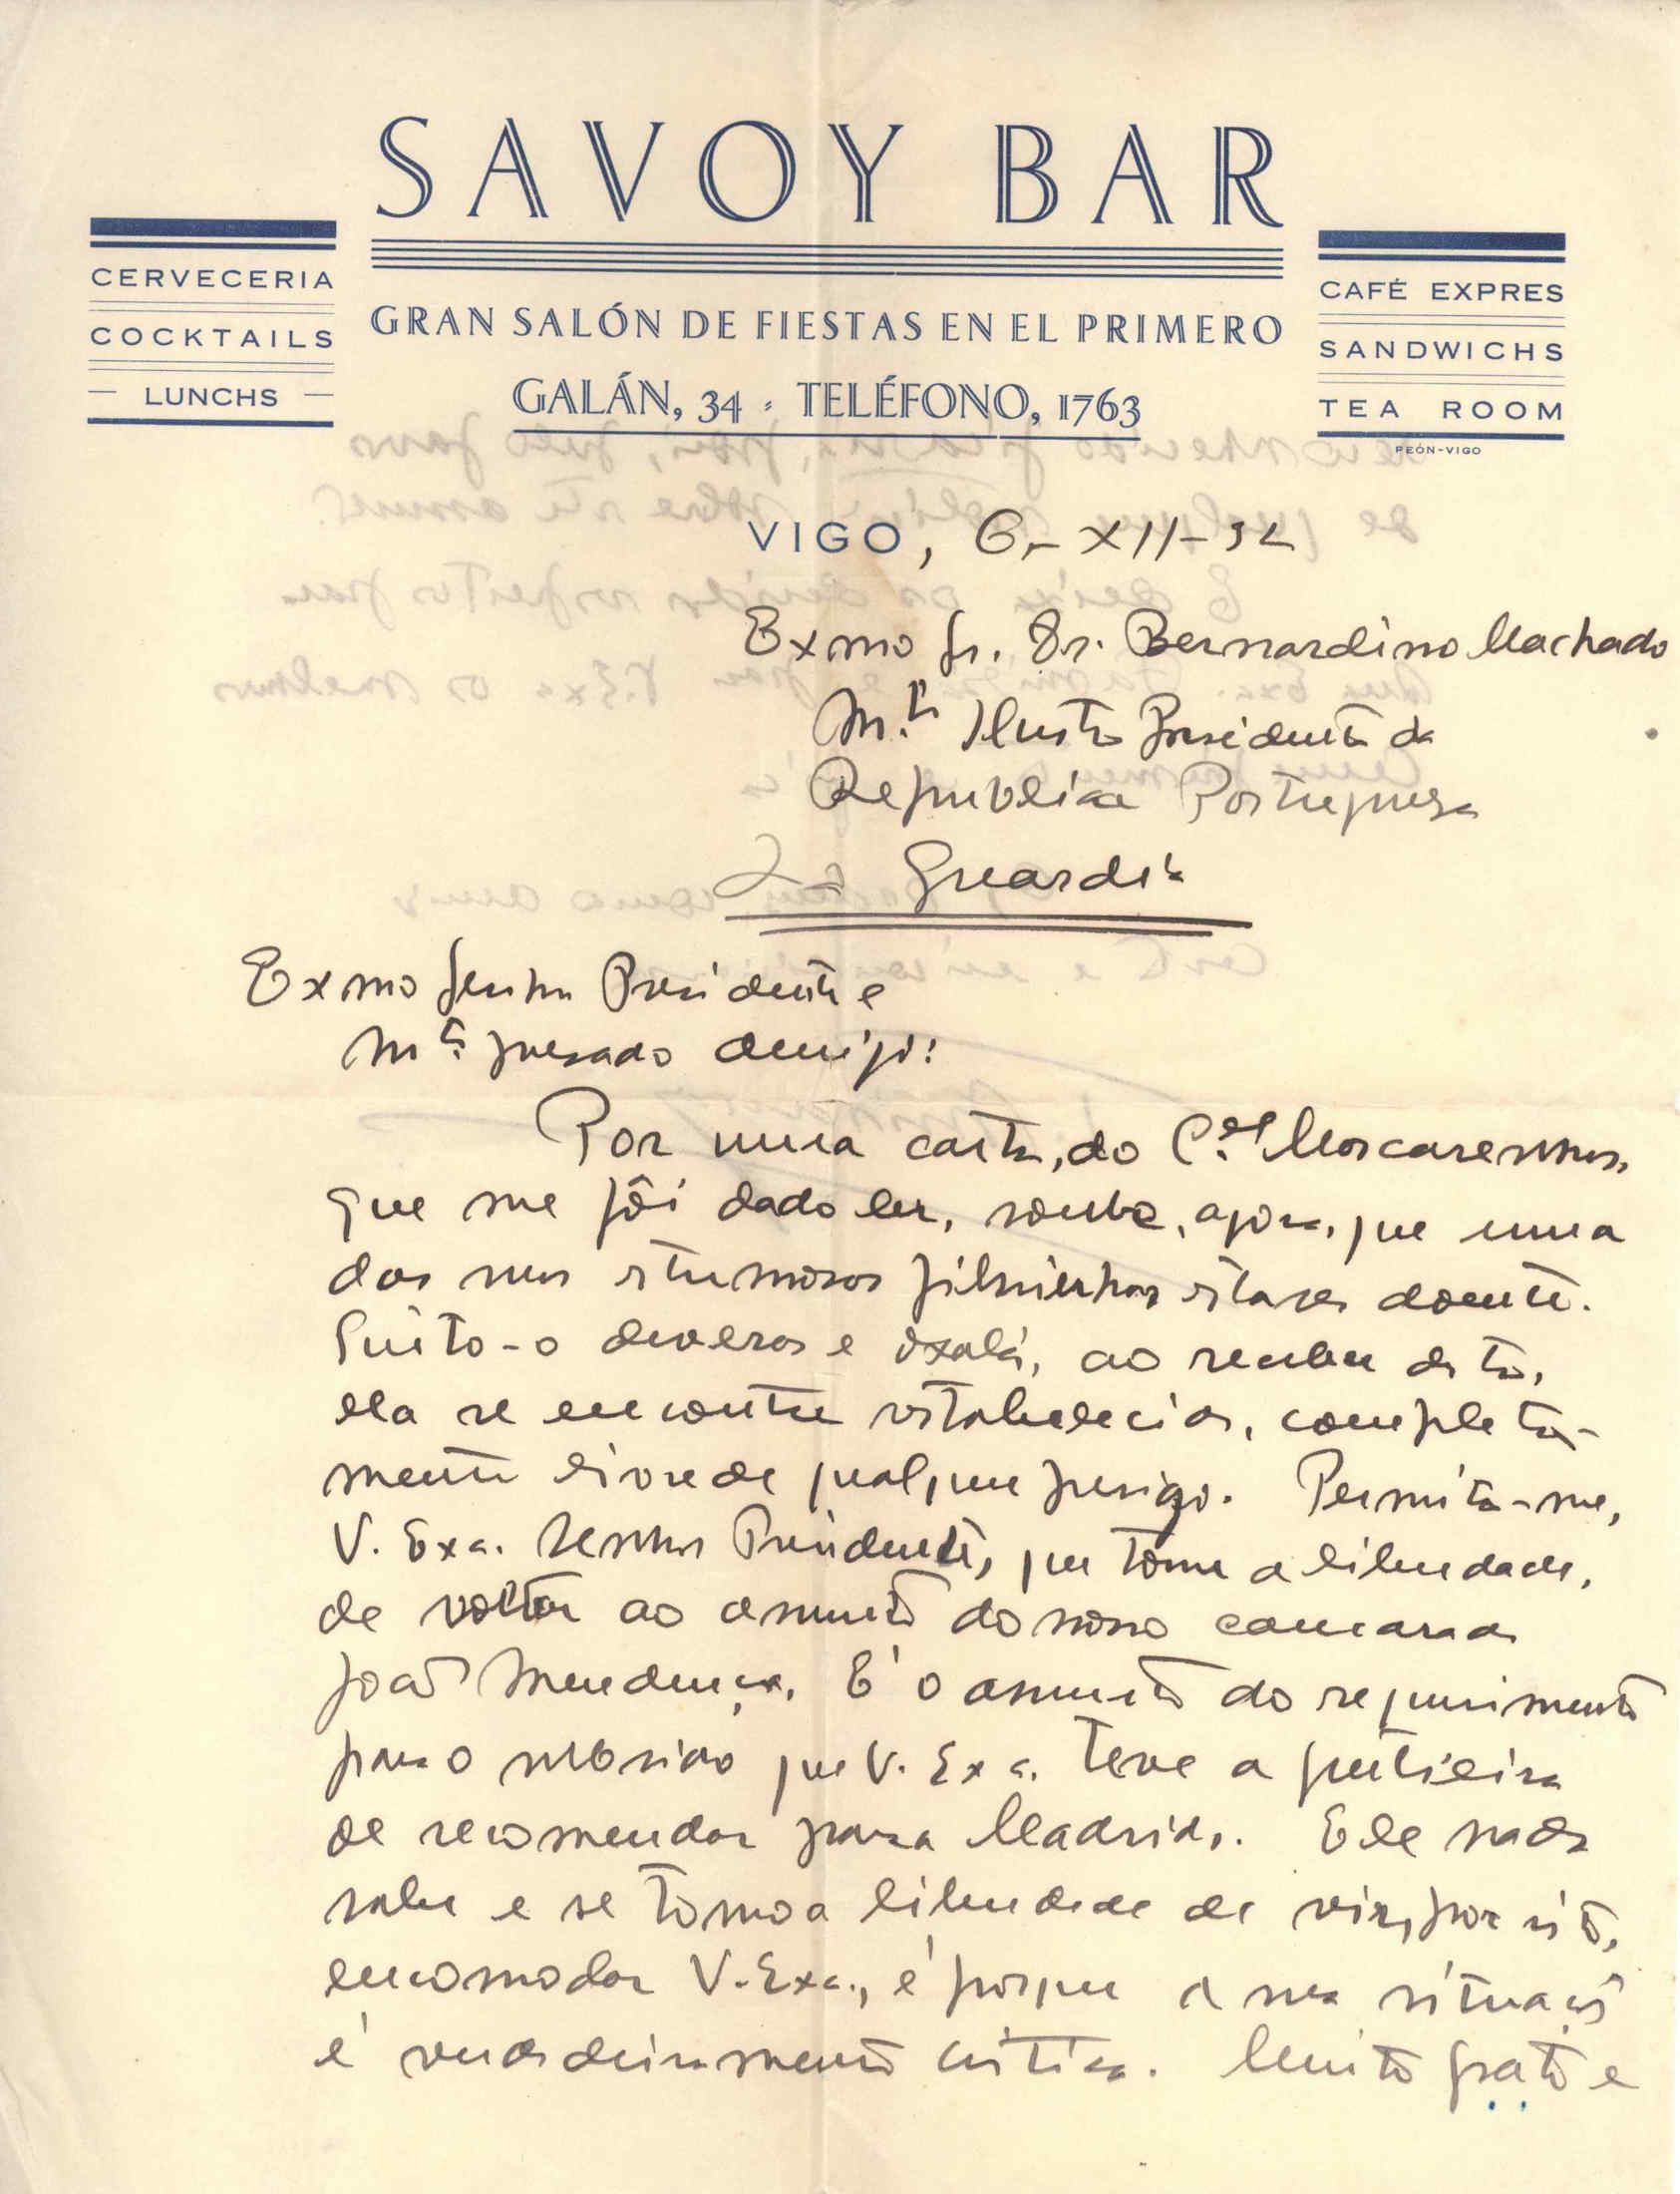 SAVOY BAR
CERVECERIA
COCKTAILS
— LUNCHS —
GRAN SALÓN DE FIESTAS EN EL PRIMERO
GALÁN, 34 - TELÉFONO, 1763
CAFÉ EXPRES
SANDWICHS
TEA ROOM
PEÓN-VIGO
VIGO, 6-XII-32
Exmo Sr. Dr. Bernardino Machado
M.to Ilustre Presidente da
Republica Portuguesa
La Guardia
Exmo Senhor Presidente e
M.to presado amigo:
Por uma carta, do C.el Mascarenhas,
que me fôi dado ler, soube, agora, que uma
das suas estremosas filhinhas estava doente.
Sinto-o deveras e oxalá, ao receber desta,
ela se encontre restabelecida, completa-
mente livre de qualquer perigo. Permita-me,
V. Exa. Senhor Presidente, que tome a liberdade,
de voltar ao assunto do nosso camarada
João Mendonça. É o assunto do requerimento
para o subsidio que V. Exa. teve a gentileza
de recomendar para Madrid. Ele nada
sabe e se tomo a liberdade de vir, por isto,
encomodar V. Exa., é porque a sua situação
é verdadeiramente critica. Muito grato e